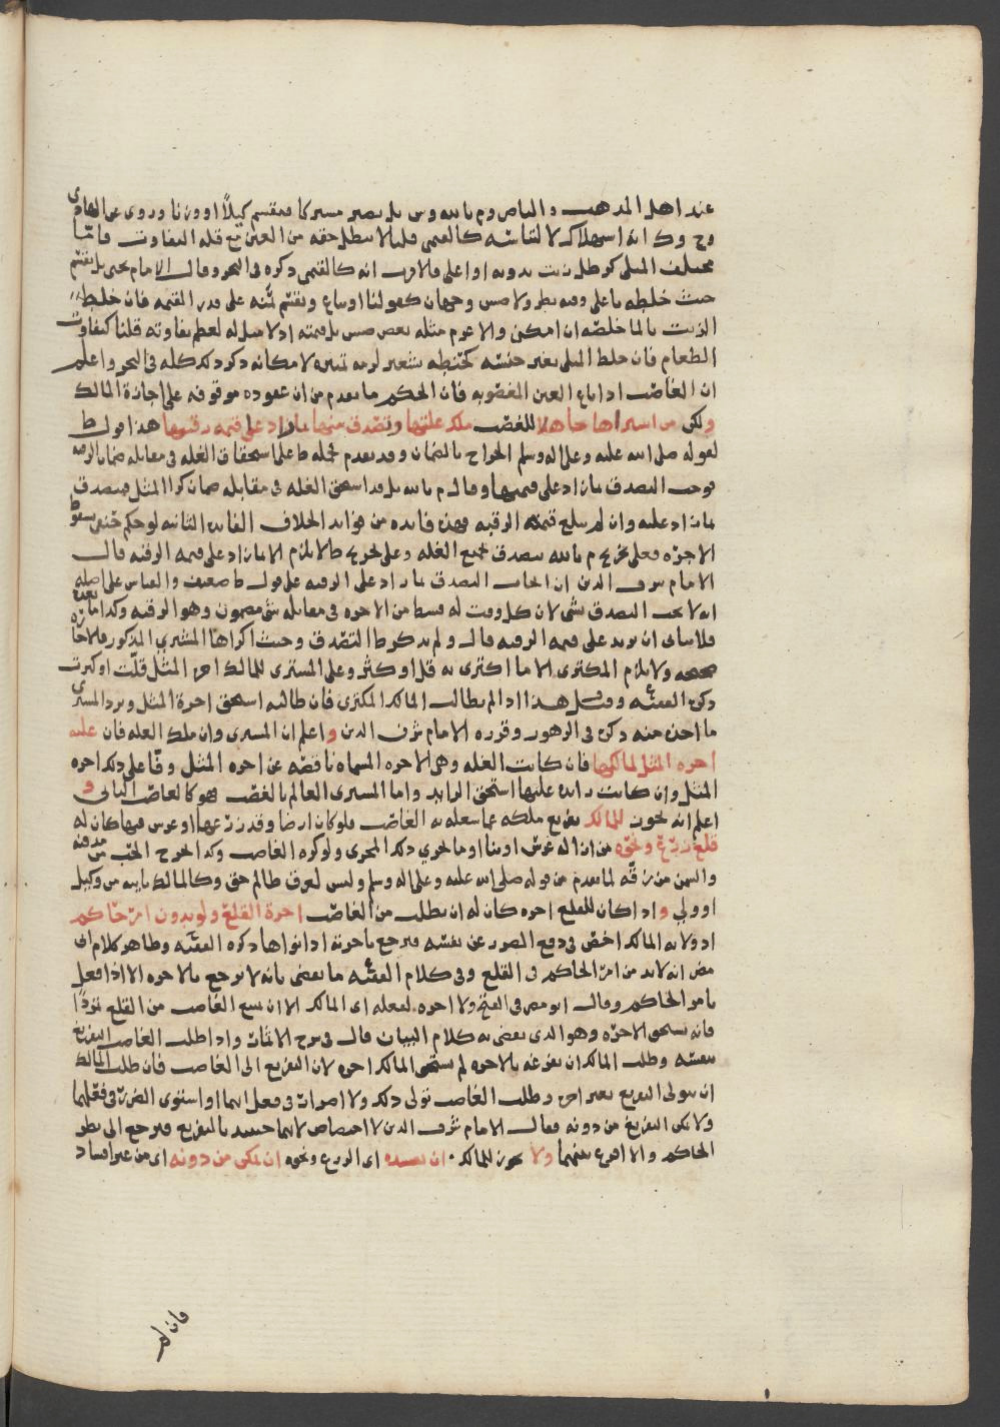 عند اهل المذهب والناصر وم بالله وش بل يصير مشتركا فيقسم كيلاً او وزنا وروى عن الهادى
وح وك انه استهلاك لالتباسه كالقيمي قلنا لا يبطل حقه من العين مع قلة التفاوت واما
مختلف المثلي كرطل زيت بدونه او اعلى فالاقرب انه كالقيمي ذكره في البحر وقال الامام يحيى بل يقسم
حيث خلطه باعلى وفيه نظر ولاصش وجهان كقولنا او يباع ويقسم ثمنه على قدر القيمة فان خلط
الزيت بالما خلصه ان امكن والا غرم مثله بعض صش بل قيمته اذ لا مثل له لعظم تفاوته قلنا كتفاوت
الطعام فان خلط المثلي بغير جنسه كحنطة بشعير لزمه تمييزه لامكانه ذكر ذلك كله في البحر واعلم
ان الغاصب اذا باع العين المغصوبه فان الحكم ما تقدم من ان عقوده موقوفه على اجازة المالك
ولكن من اشتراها جاهلا للغصب ملك غلتها وتصدق منها بما زاد على قيمة رقبتها هذا قول ط
لقوله صلى الله عليه وعلى اله وسلم الخراج بالضمان وقد تقدم فحمله ط على استحقاق الغله في مقابلة ضمان الرقبه
فوجب التصدق بما زاد على قيمتها وقال م بالله بل قد استحق الغله في مقابلة ضمان كرا المثل فيتصدق
بما زاد عليه وان لم يبلغ قيمة الرقبه فهذه فايده من فوايد الخلاف الفايده الثانيه لو حكم حنفي بسقوط
الاجره فعلى تخريج م بالله يتصدق بجميع الغله وعلى تخريج ط لا يلزم الا ما زاد على قيمة الرقبه قال
الامام شرف الدين ان ايجاب التصدق بما زاد على الرقبه على قول ط ضعيف والقياس على اصله
انه لا يجب التصدق بشي لان كل وقت له قسط من الاجره في مقابلة شي مضمون وهو الرقبه وكذا ما بعده
فلا يتاتى ان يزيد على قيمة الرقبه قال ولم يذكر ط التصدق وحيث اكراها المشتري المذكور فالاجاره
صحيحه ولا يلزم المكتري الا ما اكترى به قل او كثر وعلى المشتري للمالك اجره المثل قلّت او كثرت
ذكره الفقيه وقيل هذا اذا لم يطالب المالك المكترى فان طالبه استحق اجرة المثل ويرد المشتري
ما اخذ منه ذكره في الزهور وقرره الامام شرف الدين واعلم ان المشتري وان ملك الغله فان عليه
اجرة المثل لمالكها فان كانت الغله وهي الاجره المسماه ناقصه عن اجره المثل وفّا على ذلك اجره
المثل وان كانت زايده عليها استحق الزايد واما المشتري العالم بالغصب فهو كالغاصب الثاني و
اعلم انه يجوز للمالك تفريغ ملكه عما شغله به الغاصب فلو كان ارضا وقد زرعها او غرس فيها كان له
قلع زرع ونحوه من ازالة غرس او بنا او ما يجري ذلك المجرى ولو كره الغاصب وكذا اخرج الحب من مدفنه
والسمن من زقه لما تقدم من قوله صلى الله عليه وعلى اله وسلم وليس لعرق ظالم حق وكالمالك نايبه من وكيل
او ولي واذا كان للقلع اجره كان له ان يطلب من الغاصب اجرة القلع ولو بدون امر حاكم
اذ ولاية المالك اخص في دفع الضرر عن نفسه فيرجع باجرته اذا نواها ذكره الفقيه وظاهر كلام ابي
مضر انه لا بد من امر الحاكم في القلع وفي كلام الفقيه ما يقضي بانه لا يرجع بالاجره الا اذا فعل
بامر الحاكم وقال ابو مضر في الفتح ولا اجره لفعله اي المالك الا ان يمتنع الغاصب من القلع تمردًا
فانه يستحق الاجره وهو الذي يقضي به كلام البيان قال في شرح الاثمار واذا طلب الغاصب التفريغ
بنفسه وطلب المالك ان يفرغه بالاجره لم يستحق المالك اجره لان التفريغ الى الغاصب فان طلب المالك
ان يتولى التفريغ بغير اجره وطلب الغاصب تولي ذلك ولا اضرار في فعل ايهما او استوى الضرر في فعلهما
ولا يمكن التفريغ من دونه فقال الامام شرف الدين لا اختصاص لايهما حينئذ بالتفريغ فيرجع الى نظر
الحاكم والا اقرع بينهما ولا يجوز للمالك ان يفسده اي الزرع ونحوه ان تمكن من دونه اي من غير افساد
فان لم